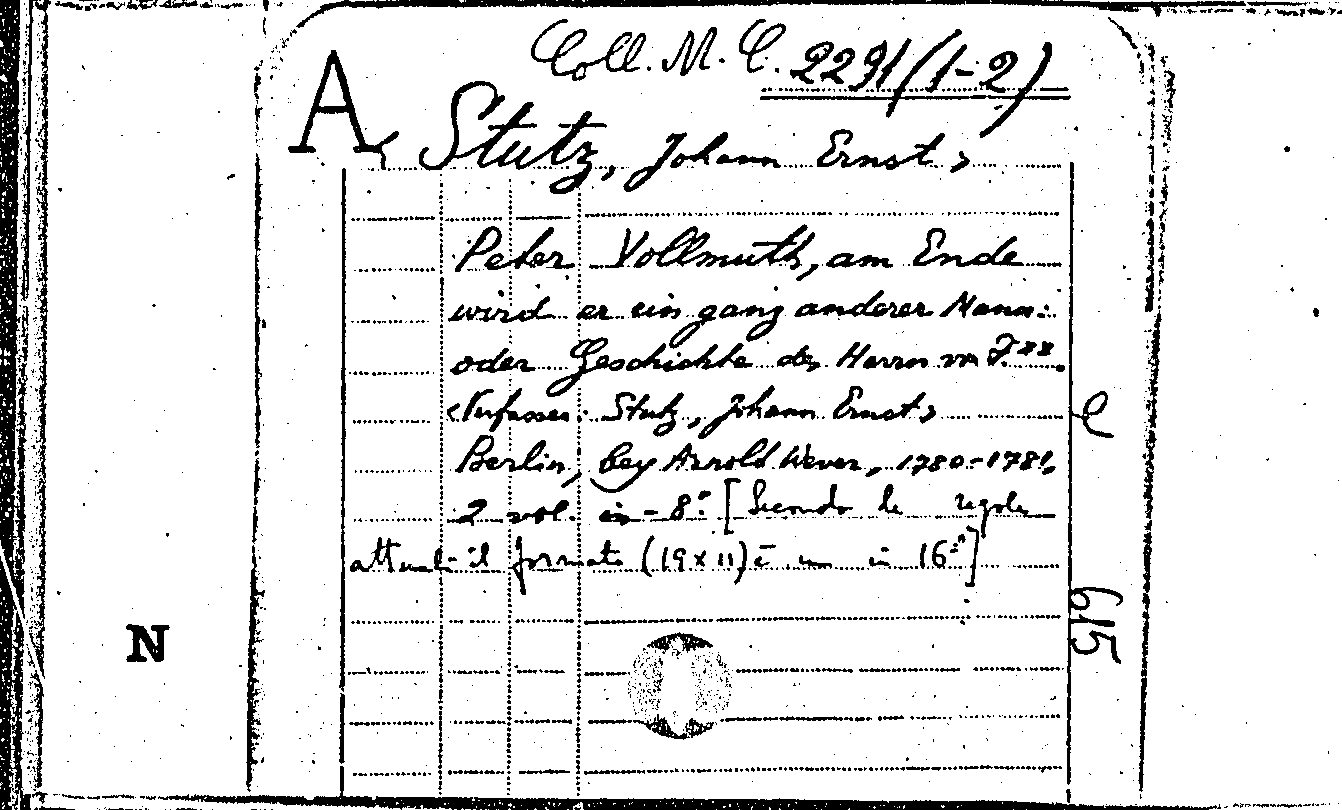 Coll. M. C. 2291/(1-2)
A
<Stutz, Johann Ernst>
Peter Vollmuth, am Ende
wird er ein ganz anderer Mann:
oder Geschichte des Herrn von F.**.
<Verfasser: Stutz, Johann Ernst>
Berlin, bey Arnold Wever, 1780-1781,
2 vol. in-8.° [Secondo le regole
attuali il formato (19x11) è un in 16.°]
e
615
N